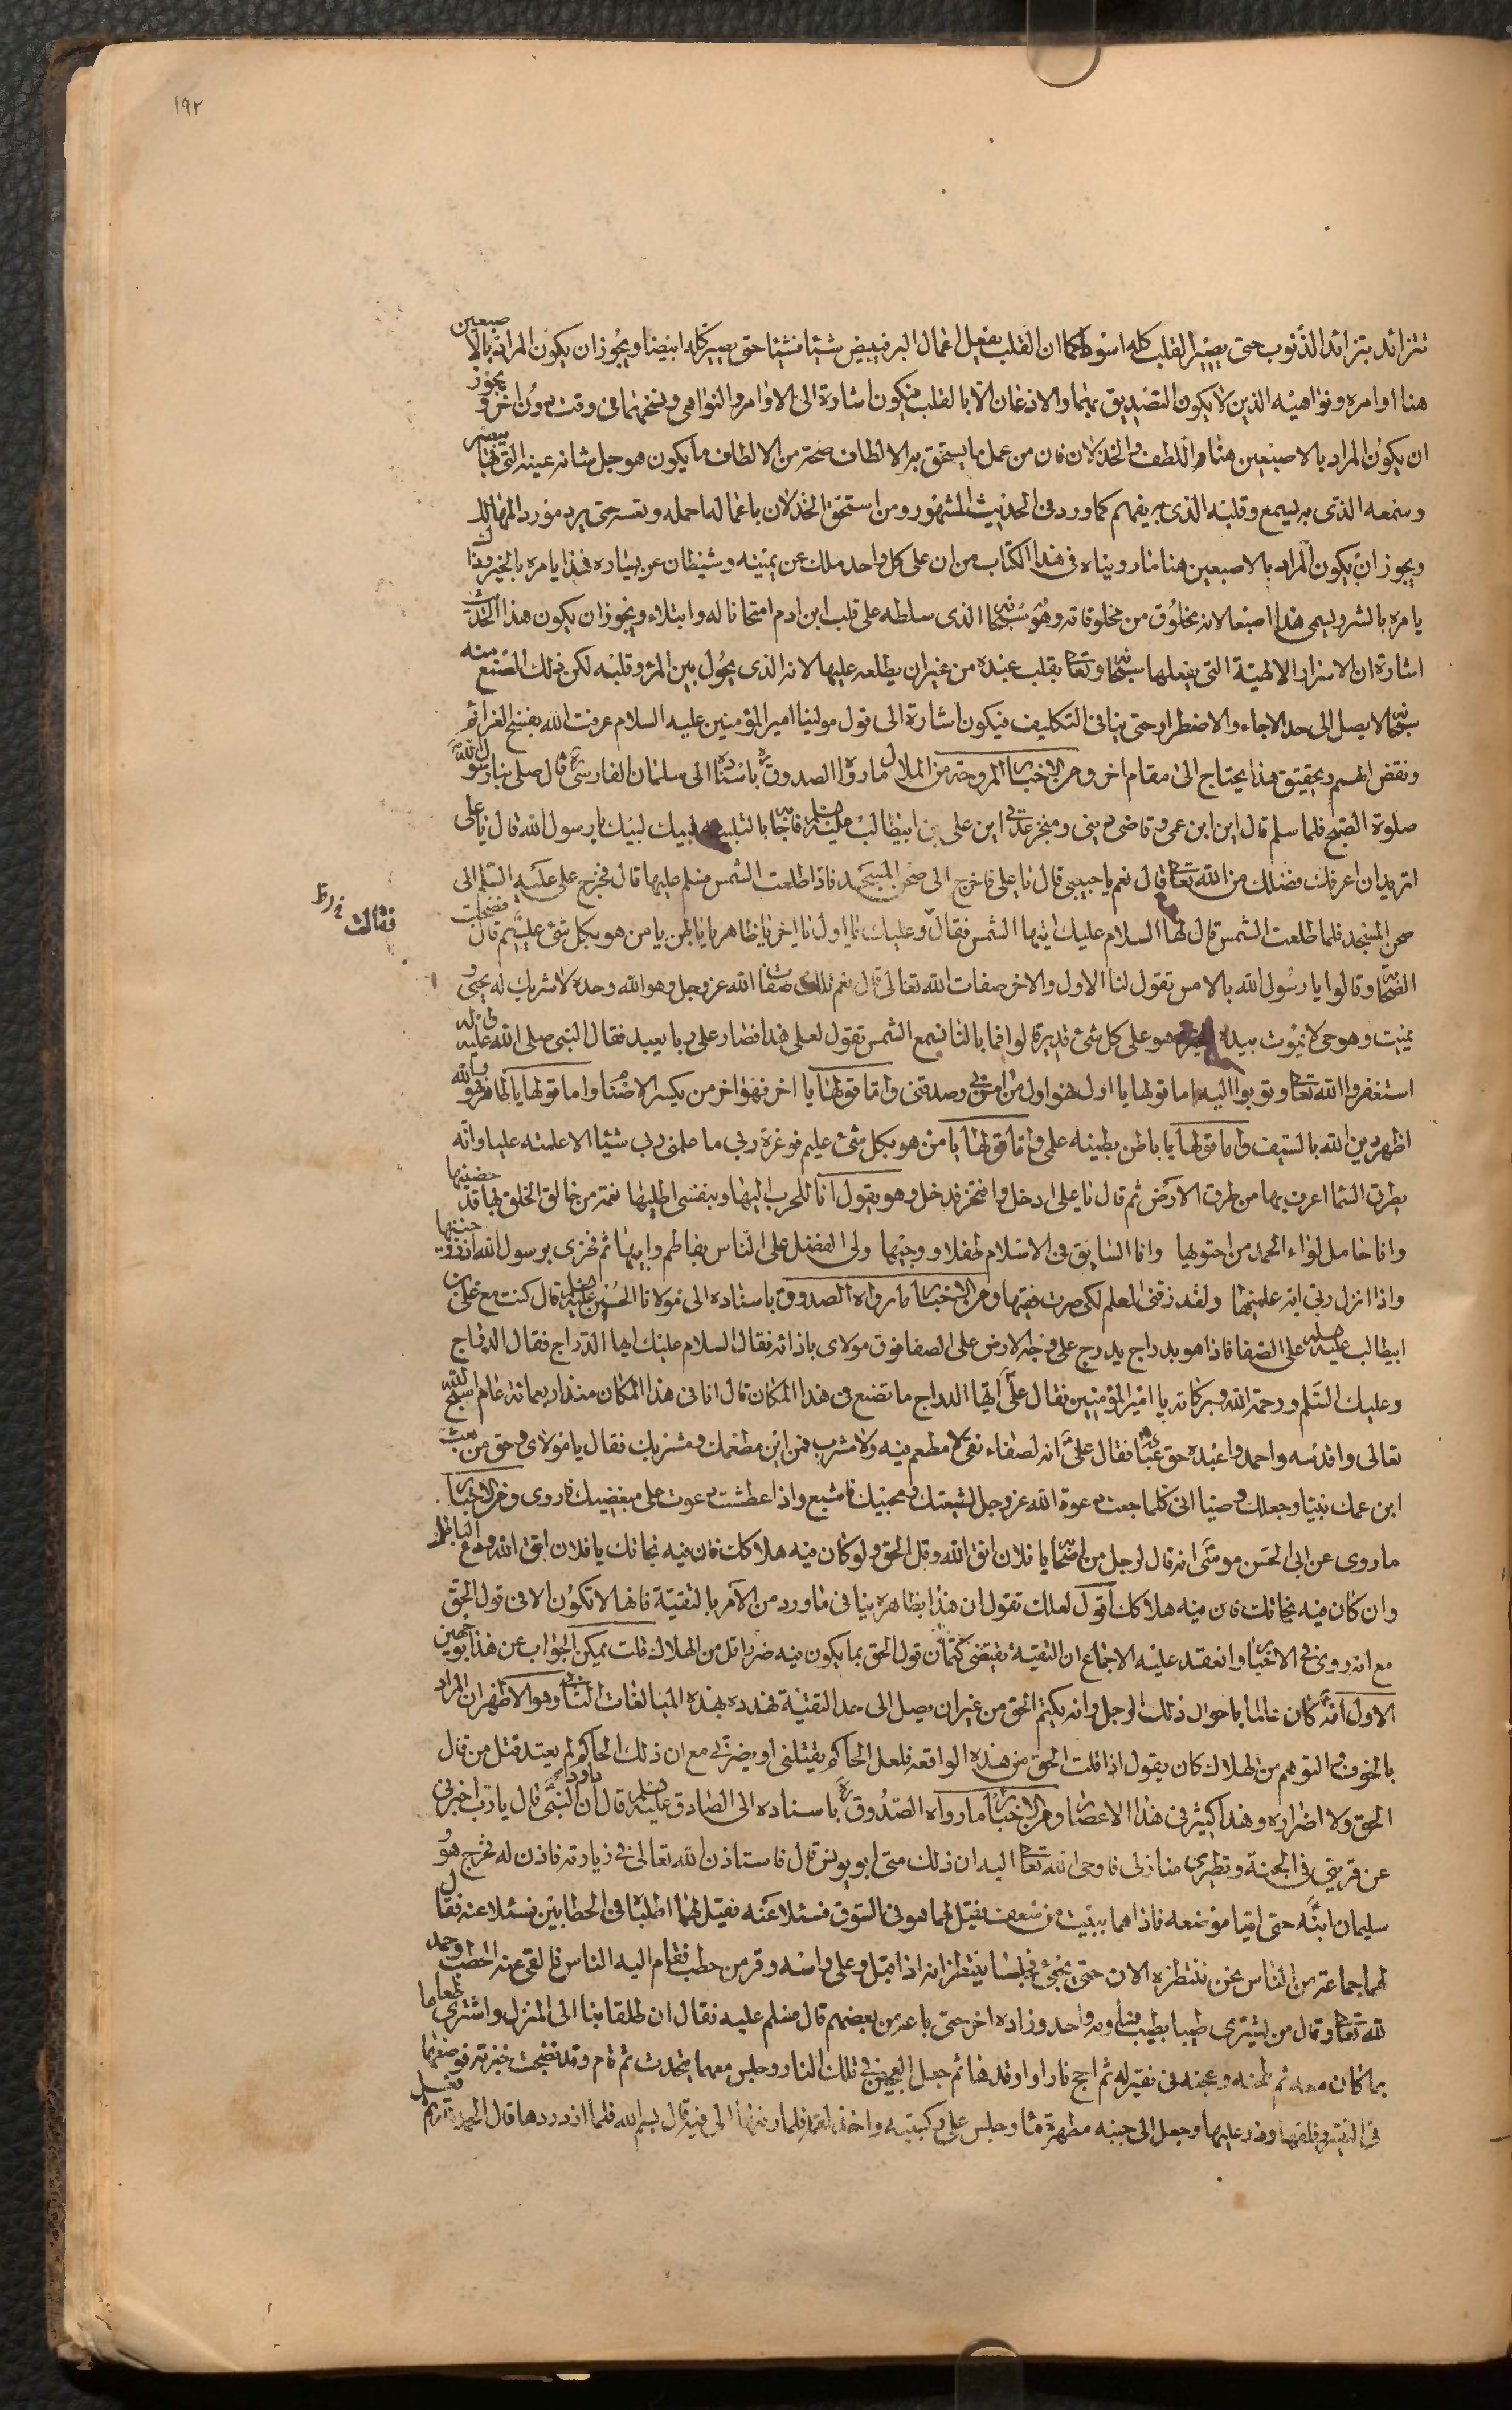 ١٩٢
تتزائد بتزائد الذنوب حتى يصير القلب كله اسود كما ان القلب بفعل اعمال البر فيبيض شيئا فشيئا حتى يصير كله ابيضا ويجوز ان يكون المراد بالاصبعين
هنا اوامره ونواهيه الذين لا يكون التصديق بهما والاذعان الا بالقلب فيكون اشارة الى الاوامر والنواهي ونسخهما في وقت دون اخر ويجوز
ان يكون المراد بالاصبعين هنا اللطف والخذلان فان من عمل ما يستحق به الالطاف منحه من الالطاف ما يكون هو جل شانه عينه التي بها يبصر
وسمعه الذي به يسمع وقلبه الذي به يفهم كما ورد في الحديث المشهور ومن استحق الخذلان باعماله اهمله ونفسه حتى يرد موارد المهالك
ويجوز ان يكون المراد بالاصبعين هنا ما رويناه في هذا الكتاب من ان على كل واحد ملك عن يمينه وشيطان عن يساره فهذا يامره بالخير وذاك
يامره بالشر ويسمى هذا اصبعا لانه مخلوق من مخلوقاته وهو سبحانه الذي سلطه على قلب ابن ادم امتحانا له وابتلاء ويجوز ان يكون هذا الحديث
اشارة ان الاسرار الالهية التي يفعلها سبحانه وتعالى بقلب عبده من غير ان يطلعه عليها لانه الذي يحول بين المرء وقلبه لكن ذلك الصنع منه
سبحانه لا يصل الى حد الالجاء والاضطرار حتى ينافي التكليف فيكون اشارة الى قول مولينا امير المؤمنين عليه السلام عرفت الله بفسخ العزائم
ونقض الهمم وتحقيق هذا يحتاج الى مقام اخر ومن الاخبار المروحة من الملال ما رواه الصدوق ره باسناده الى سلمان الفارسي ره قال صلى بنا رسول الله ص
صلوة الصبح فلما سلم قال اين ابن عمي وقاضي ديني ومنجز عدتي اين علي بن ابيطالب عليه السلم فاجابه بالتلبية لبيك لبيك يا رسول الله قال يا علي
اتريد ان اعرفك فضلك من الله تعالى قال نعم يا حبيبي قال يا علي فاخرج الى صحن المسجد فاذا طلعت الشمس فسلم عليها قال فخرج علي عليه السلم الى
صحن المسجد فلما طلعت الشمس قال لها السلام عليك ايتها الشمس فقال وعليك يا اول يا اخر يا ظاهر يا باطن يا من هو بكل شئ عليم قال فضجت
فقالت خ ل ظ
الصحابة وقالوا يا رسول الله بالامس تقول لنا الاول والاخر صفات الله تعالى قال نعم تلك صفات الله عز وجل وهو الله وحده لا شريك له يحيي و
يميت وهو حي لا يموت بيده الخير وهو على كل شئ قدير قالوا فما بالنا نسمع الشمس تقول لعلي هذا فصار علي ربا يعبد فقال النبي صلى الله عليه واله
استغفروا الله تعالى وتوبوا اليه اما قولها يا اول فهو اول من امن بي وصدقني واما قولها يا اخر فهو اخر من يكسر الاصنام واما قولها يا ظاهر فهو والله
اظهر دين الله بالسيف واما قولها يا باطن بطينه علمي واما قولها يا من هو بكل شئ عليم فوعزة ربي ما علمني ربي شيئا الا علمته عليا وانه
بطرق السماء اعرف بها من طرق الارض ثم قال يا علي ادخل وافتخر فدخل وهو يقول انا للحرب اليها وبنفسي اطليها نعمة من خالق الخلق بها قد خصنيها
وانا حامل لواء الحمد من احتويها وانا السابق في الاسلام طفلا ووجيها ولي الفضل على الناس بفاطم وابيها ثم فخري برسول الله اذ زوجنيها
واذا انزل ربي اية علمنيها ولقد زقني العلم لكي صرت فقيها ومن الاخبار ما رواه الصدوق باسناده الى مولانا الحسين عليه السلم قال كنت مع علي بن
ابيطالب عليه السلم على الصفا فاذا هو بدراج يدرج على وجه الارض على الصفا فوق مولاي بازائه فقال السلام عليك ايها الدراج فقال الدراج
وعليك السلم ورحمة الله وبركاته يا امير المؤمنين فقال علي ايها الدراج ما تصنع في هذا المكان قال انا في هذا المكان منذ اربعمائة عام اسبح الله
تعالى واقدسه واحمده واعبده حق عبادته فقال علي انه لصفاء نقي لا مطعم فيه ولا مشرب فمن اين مطعمك ومشربك فقال يا مولاي وحق من بعث
ابن عمك نبيا وجعلك وصيا اني كلما جعت دعوت الله عز وجل لشيعتك ومحبيك فاشبع واذا عطشت دعوت على مبغضيك فاروى ومن الاخبار
ما روي عن ابي الحسن موسى انه قال لرجل من اصحابه يا فلان اتق الله وقل الحق ولو كان فيه هلاكك فان فيه نجاتك يا فلان اتق الله ودع الباطل
وان كان فيه نجاتك فان فيه هلاكك اقول لعلك تقول ان هذا بظاهره ينافي ما ورد من الامر بالتقية فانها لا تكون الا في قول الحق
مع انه روي في الاخبار وانعقد عليه الاجماع ان التقية تقتضي كتمان قول الحق بما يكون فيه ضرر اقل من الهلاك قلت يمكن الجواب عن هذا بوجهين
الاول انه كان عالما باحوال ذلك الرجل وانه يكتم الحق من غير ان يصل الى حد التقية فهدده بهذه المبالغات الثاني وهو الاظهر ان المراد
بالخوف التوهم من الهلاك كان يقول اذا قلت الحق من هذه الواقعة فلعل الحاكم يقتلني او يضرني مع ان ذلك الحاكم لم يعتد قتل من قال
الحق ولا اضراره وهذا كثير في هذا الاعصار ومن الاخبار ما رواه الصدوق ره باسناده الى الصادق عليه السلم قال ان داود النبي قال يا رب اخبرني
عن قريني في الجنة ونظيري منازلي فاوحى الله تعالى اليه ان ذلك متى ابو يونس قال فاستاذن الله تعالى في زيارته فاذن له فخرج هو
سليمان ابنه حتى اتيا موضعه فاذا هما ببيت من سعف فقيل لهما هو في السوق فسئلا عنه فقيل لهما اطلباه في الحطابين فسئلا عنه فقال
لهما جماعة من الناس نحن ننتظره الان حتى يجئ فجلسا ينتظرانه اذا اقبل وعلى راسه وقر من حطب فقام اليه الناس فالقى عنه الحطب وحمد
الله تعالى وقال من يشتري طيبا بطيب فساومه واحد وزاده اخر حتى باعه من بعضهم قال فسلم عليه فقال انطلقا بنا الى المنزل واشترى طعاما
بما كان معه ثم طحنه وعجنه في نقير له ثم اجج نارا واوقدها ثم جعل العجين في تلك النار وجلس معهما يتحدث ثم قام وقد نضجت خبزته فوضعها
في النقير وفلقها وذر عليها وجعل الى جنبه مطهرة ماء وجلس على ركبتيه واخذ لقمة فلما رفعها الى فيه قال بسم الله فلما ازدردها قال الحمد لله ثم فعل